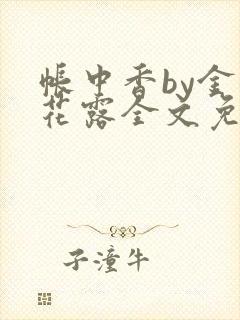 帳中香by金
花露全文免
子潼牛